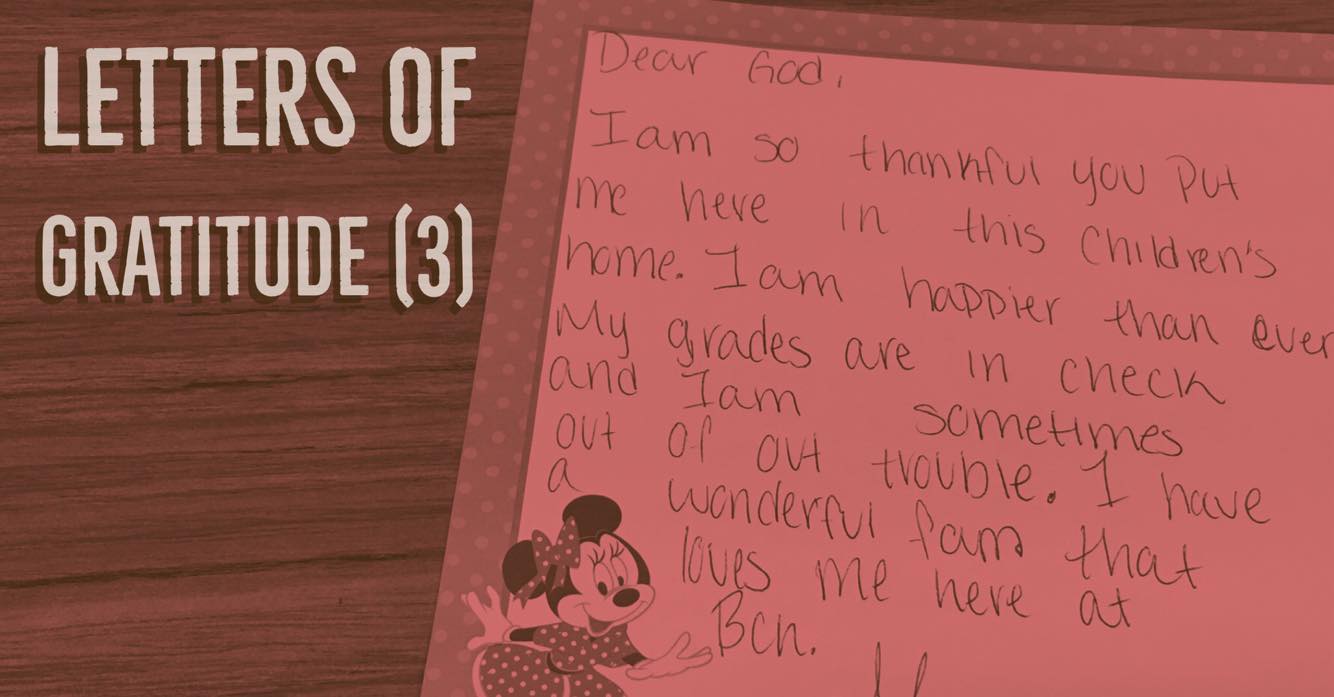 LETTERS OF
GRATITUDE (3)
Dear God,
I am so thankful you put
me here in this Children's
home. I am happier than ever
My grades are in check
and I am sometimes
out of out trouble. I have
a wonderful fam that
loves me here at
Bch.